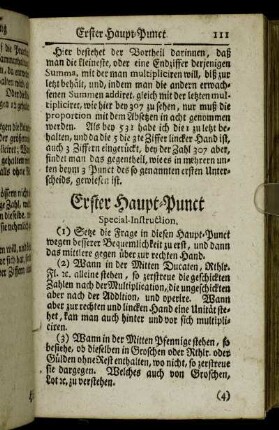 Erster Haupt-Punct 111
Hier bestehet der Vortheil darinnen, daß
man die kleineste, oder eine Endziffer derjenigen
Summa, mit der man multipliciren will, biß zur
letzt behält, und, indem man die andern erwach-
senen Summen addiret, gleich mit der letzten mul-
tipliciret, wie hier bey 307 zu sehen, nur muß die
proportion mit dem Absetzen in acht genommen
werden. Als bey 532 habe ich die 2 zu letzt be-
halten, und da die 3 die 3te Ziffer lincker Hand ist,
auch 3 Ziffern eingerückt, bey der Zahl 307 aber,
findet man das gegentheil, wie es in mehrern un-
ten beym 3 Punct des so genannten ersten Unter-
scheids, gewiesen ist.
Erster Haupt-Punct
Special-Instruction.
(1) Setze die Frage in diesen Haupt-Punct
wegen besserer Bequemlichkeit zu erst, und dann
das mittlere gegen über zur rechten Hand.
(2) Wann in der Mitten Ducaten, Rthlr.
Fl. ꝛc. alleine stehen, so zerstreue die geschickten
Zahlen nach der Multiplication, die ungeschickten
aber nach der Addition, und operire. Wann
aber zur rechten und lincken Hand eine Unität ste-
het, kan man auch hinter und vor sich multipli-
ciren.
(3) Wann in der Mitten Pfennige stehen, so
besiehe, ob dieselben in Groschen oder Rthlr. oder
Gülden ohne Rest enthalten, wo nicht, so zerstreue
sie dargegen. Welches auch von Groschen,
Lot ꝛc, zu verstehen.
(4)